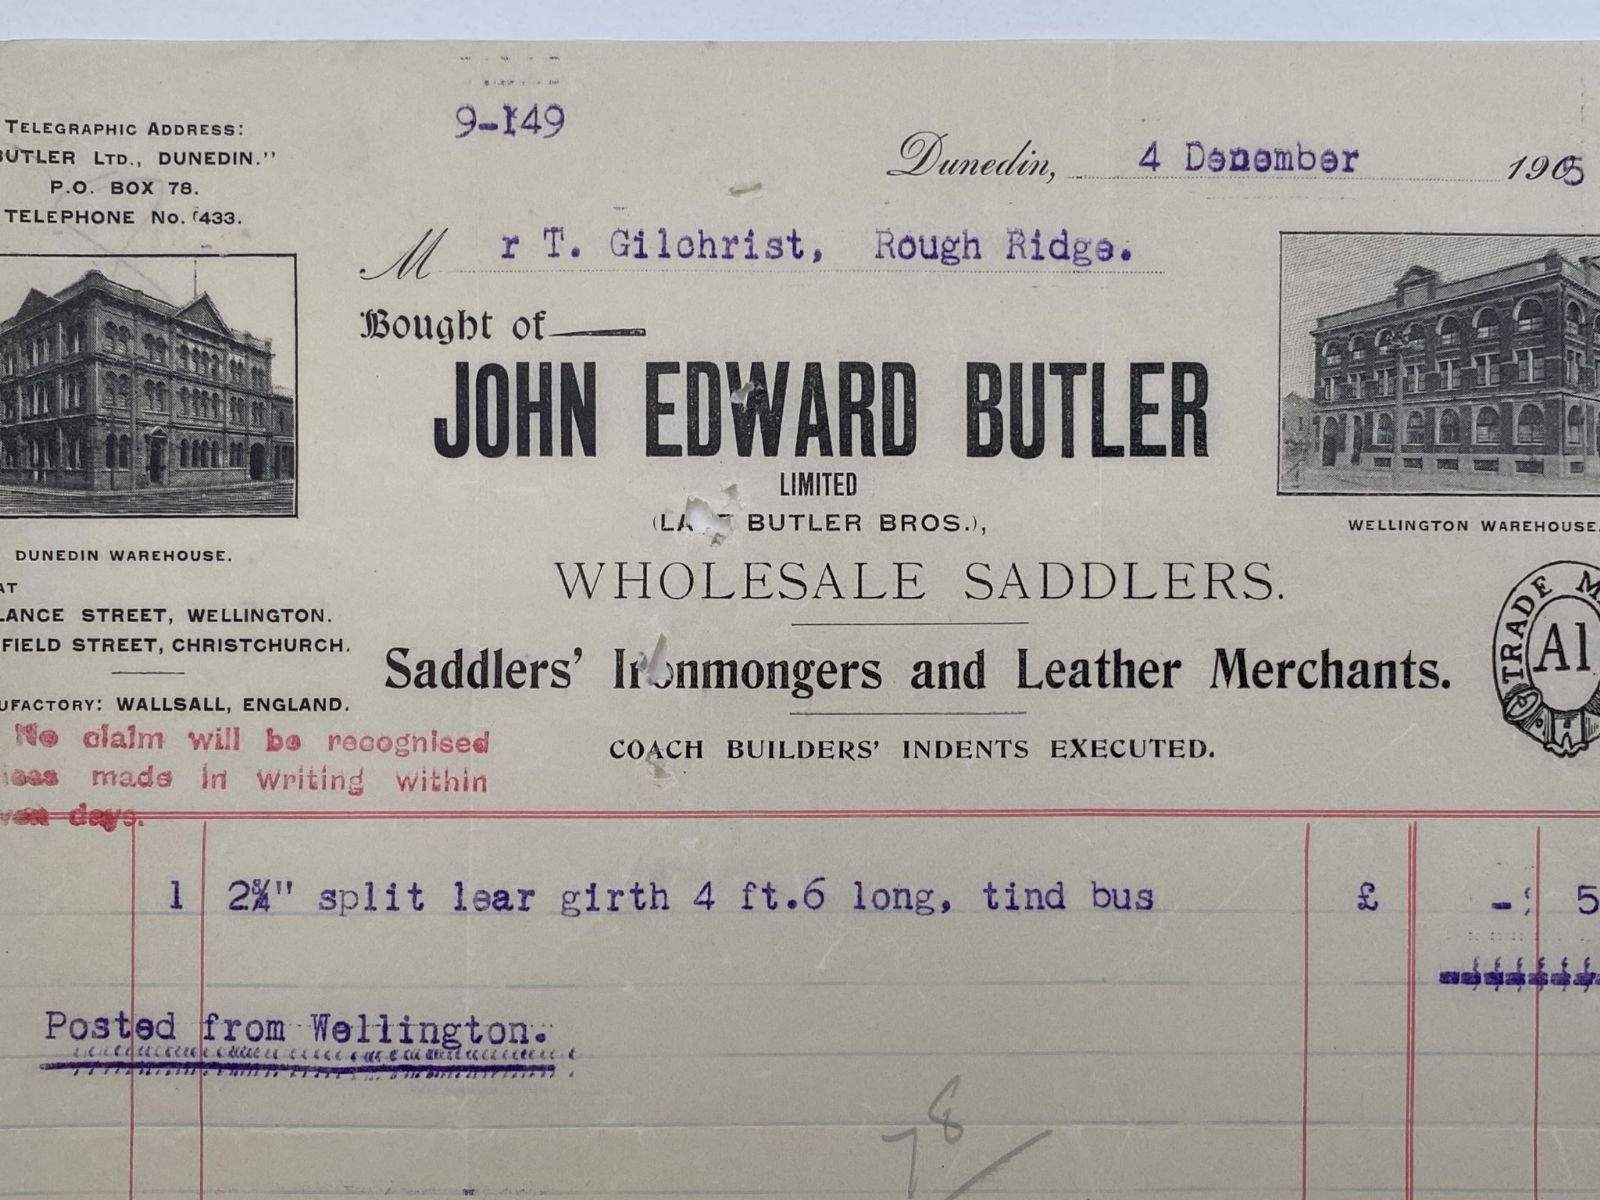 9-149
TELEGRAPHIC ADDRESS:
BUTLER LTD., DUNEDIN."
P.O. BOX 78.
TELEPHONE No. 433.
Dunedin, 4 Denember 1905
M r T. Gilchrist, Rough Ridge.
Bought of
JOHN EDWARD BUTLER
LIMITED
(LATE BUTLER BROS.),
WHOLESALE SADDLERS.
Saddlers' Ironmongers and Leather Merchants.
COACH BUILDERS' INDENTS EXECUTED.
DUNEDIN WAREHOUSE.
AT
LANCE STREET, WELLINGTON.
FIELD STREET, CHRISTCHURCH.
UFACTORY: WALLSALL, ENGLAND.
WELLINGTON WAREHOUSE.
TRADE M
A1
No claim will be recognised
less made in writing within
ven days.
1 2¾" split lear girth 4 ft.6 long, tind bus £ -: 5
Posted from Wellington.
78/